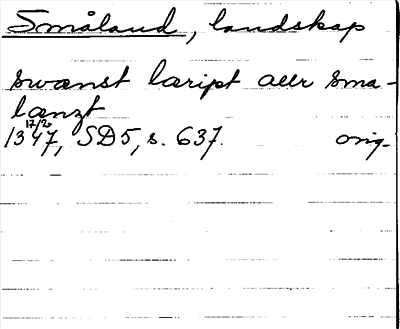 Småland, landskap
swænst læript æller sma-
lænzt
17/2
1347, SD5, s. 637. orig.